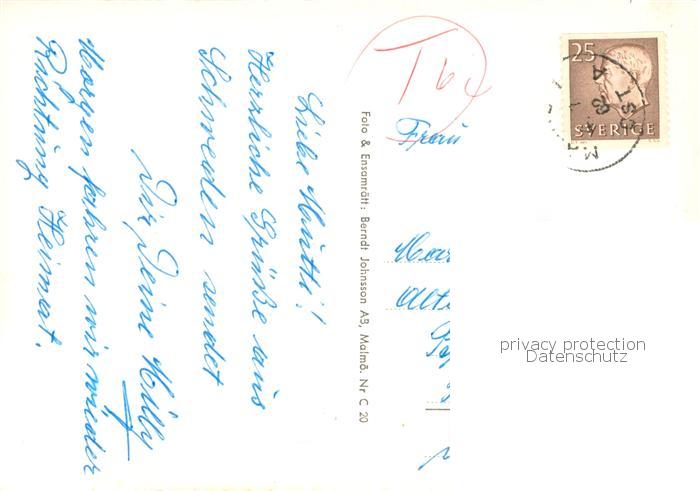 Liebe Mutti!
Herzliche Grüße aus
Schweden sendet
Dir Deine Milly
Morgen fahren wir wieder
Richtung Heimat.
Foto & Ensamrätt: Berndt Johnsson AB, Malmö. Nr C 20
T
25
SVERIGE
Frau
Mar
Alte
privacy protection
Datenschutz